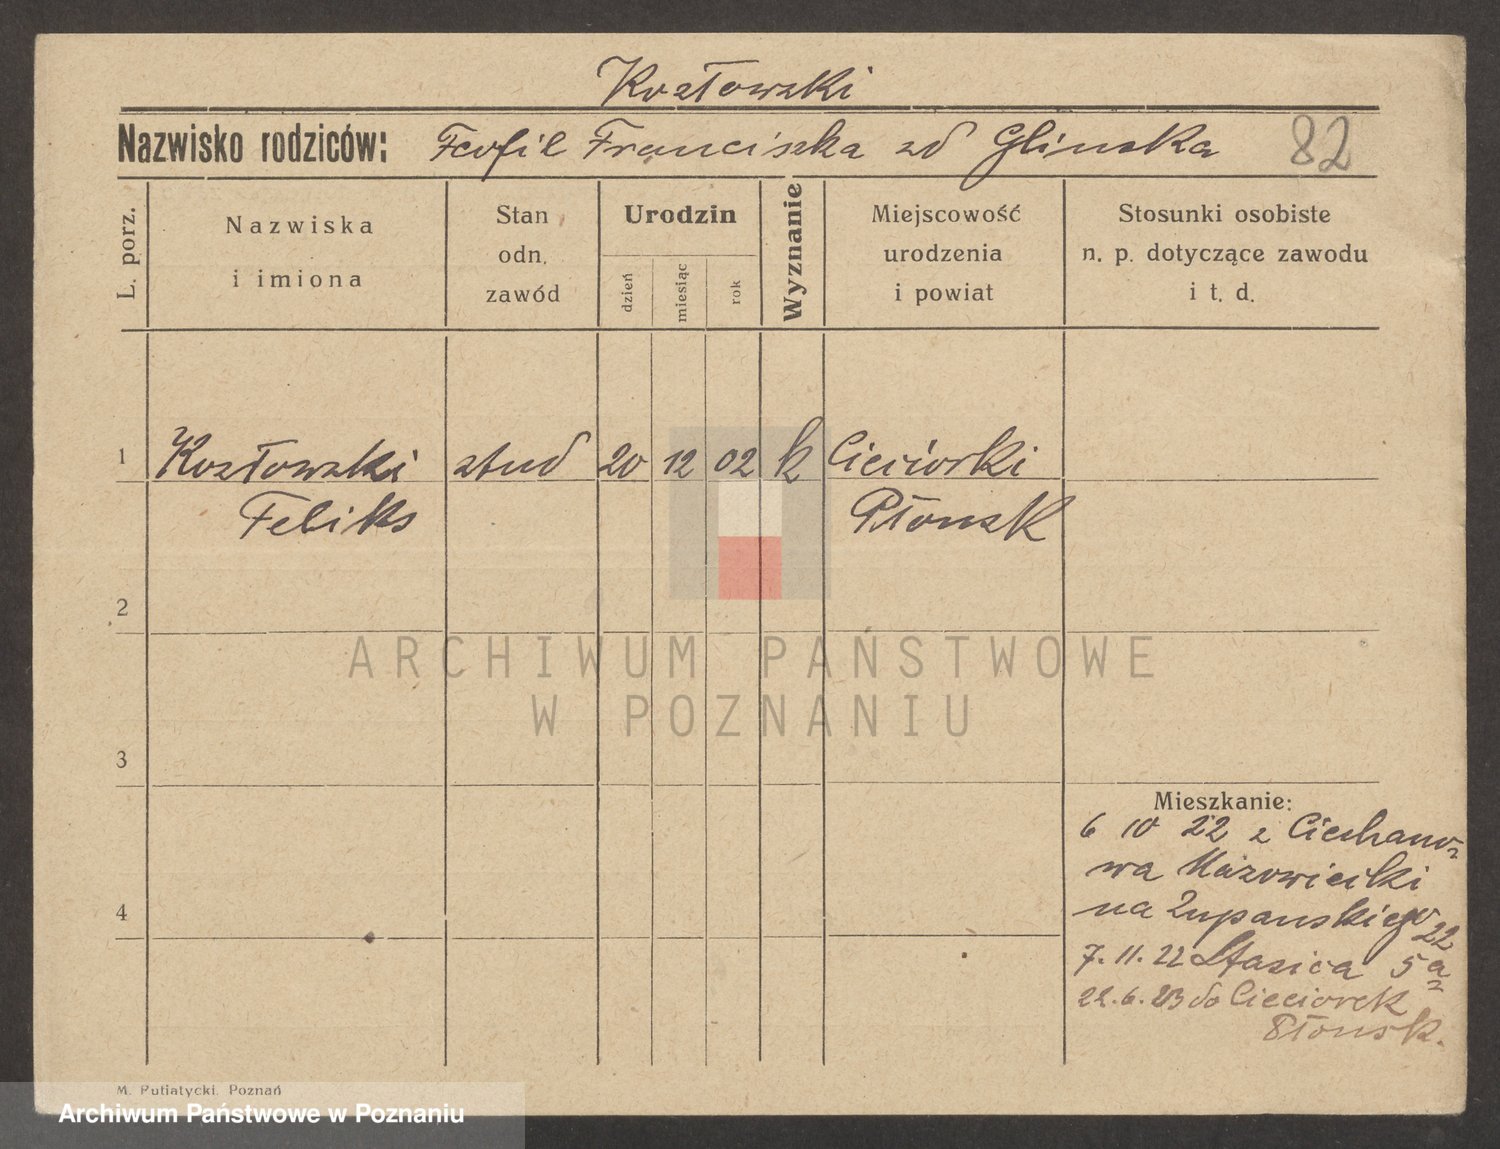 Kozłowski
Nazwisko rodziców: Teofil Franciszka zd Glinska 82
L. porz.
Nazwiska i imiona
Stan odn. zawód
Urodzin
dzień
miesiąc
rok
Wyznanie
Miejscowość urodzenia i powiat
Stosunki osobiste n. p. dotyczące zawodu i t. d.
1 Kozłowski stud 20 12 02 k Cieciorki
Feliks Płonsk
2
ARCHIWUM PAŃSTWOWE
W POZNANIU
3
Mieszkanie:
6 10 22 z Ciechano-
wa Mazowiecki
4
na Zupanskiego 22
7. 11. 22 Stasica 5a
22. 6. 23 do Cieciorek
Płonsk.
M. Putiatycki, Poznań
Archiwum Państwowe w Poznaniu